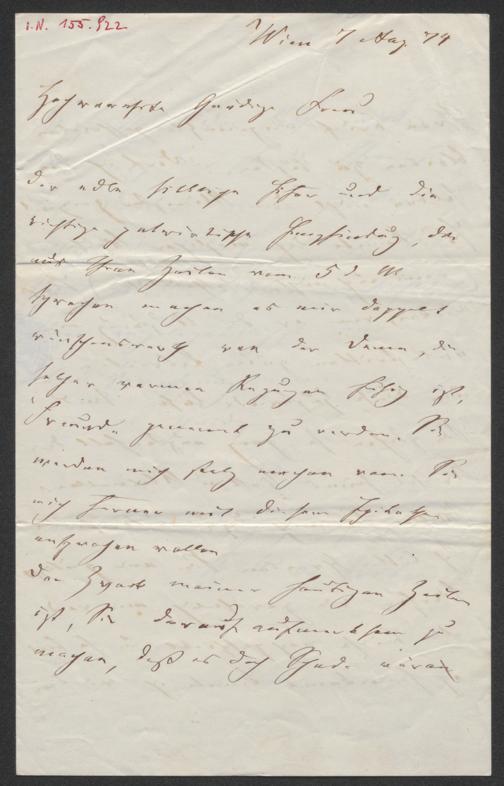 I.N. 155.922
Wien 7 Aug 74
Hochverehrte Gnädige Frau
Der edle sittliche Eifer und die
richtige patriotische Empfindung, die
aus Ihren Zeilen vom 5 d. M
sprechen machen es mir doppelt
wünschenswerth von der Dame, die
solcher warmen Regungen fähig ist,
Freund genannt zu werden. Sie
werden mich stolz machen wenn Sie
mich ferner mit diesem Epitheton
ansprechen wollen
Der Zweck meiner heutigen Zeilen
ist, Sie darauf aufmerksam zu
machen, daß es doch Schade wäre